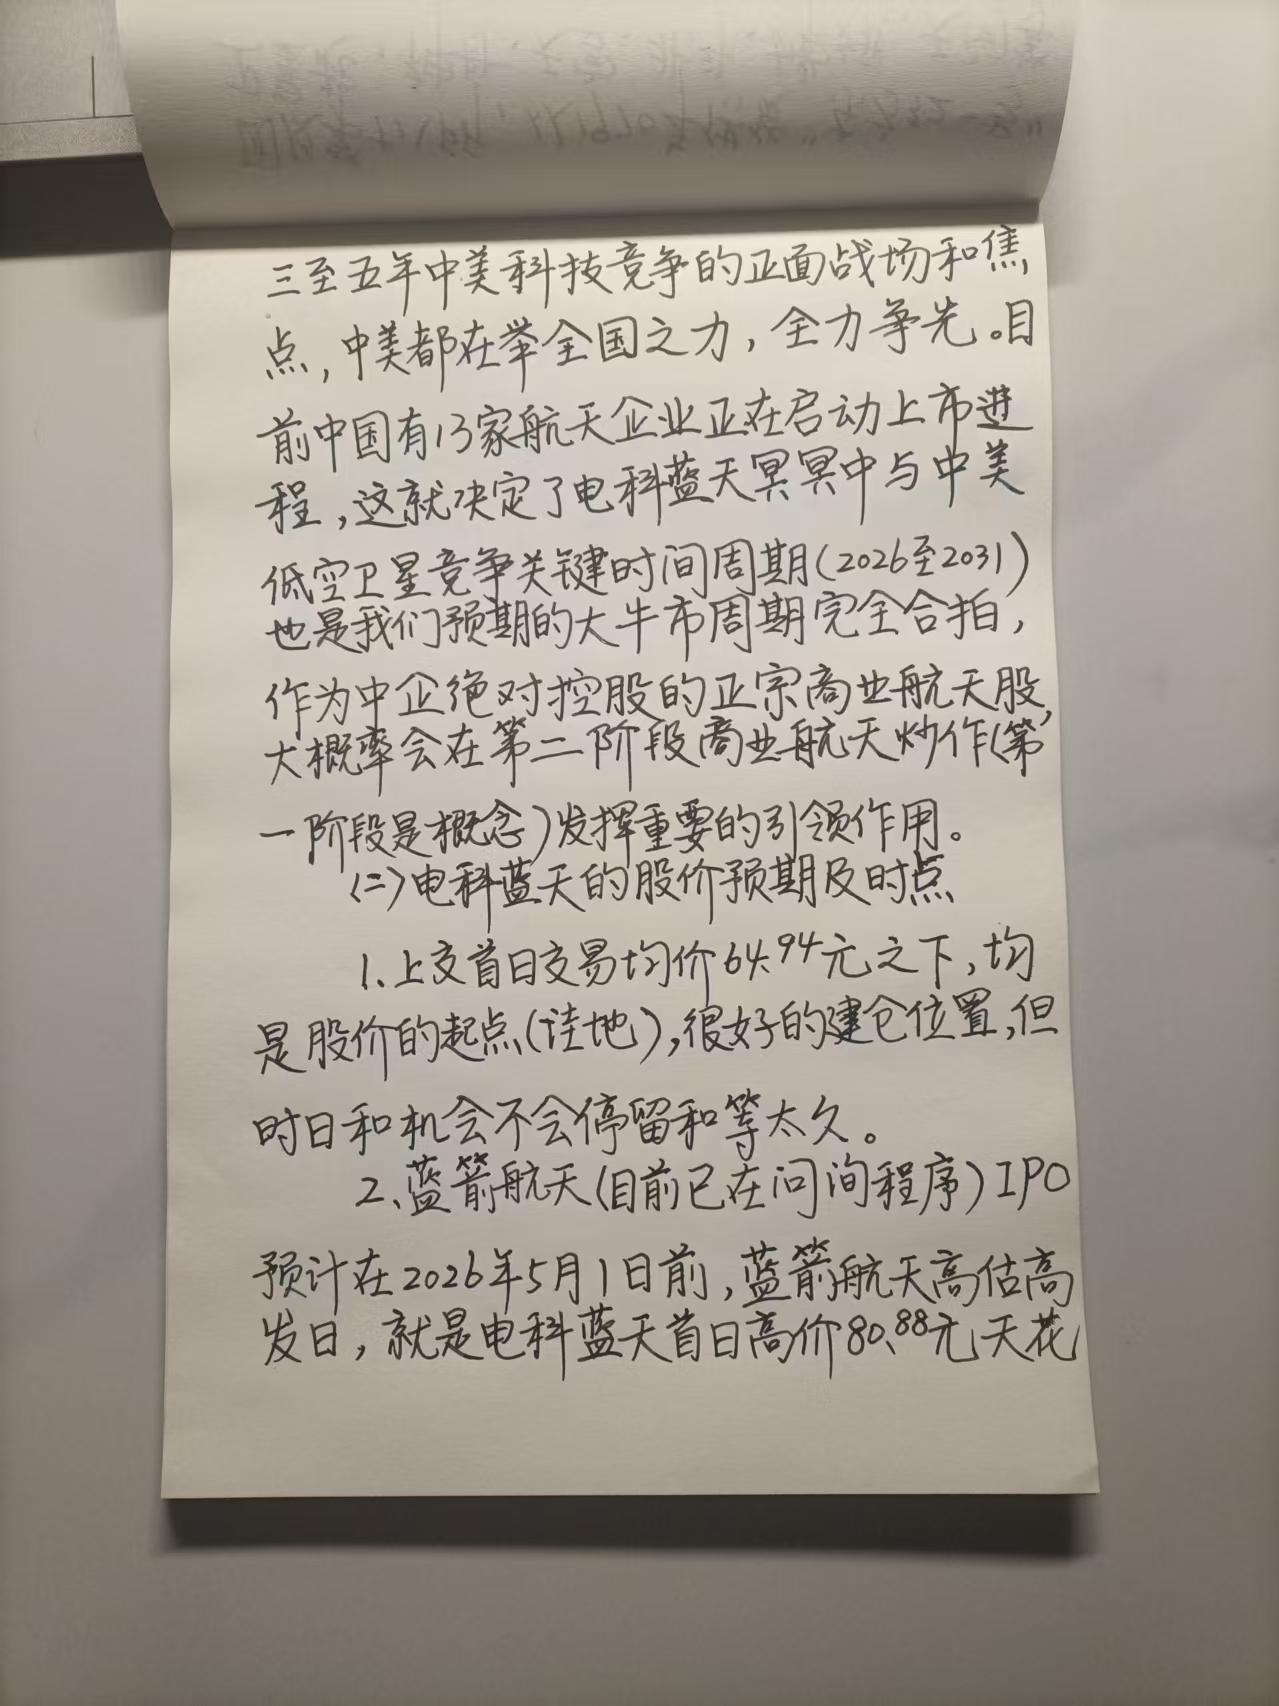 三至五年中美科技竞争的正面战场和焦
点,中美都在举全国之力,全力争先。目
前中国有13家航天企业正在启动上市进
程,这就决定了电科蓝天冥冥中与中美
低空卫星竞争关键时间周期(2026至2031)
也是我们预期的大牛市周期完全合拍,
作为中企绝对控股的正宗商业航天股,
大概率会在第二阶段商业航天炒作(第
一阶段是概念)发挥重要的引领作用。
(二)电科蓝天的股价预期及时点
1.上交首日交易均价64.94元之下,均
是股价的起点(洼地),很好的建仓位置,但
时日和机会不会停留和等太久。
2、蓝箭航天(目前已在问询程序)IPO
预计在2026年5月1日前,蓝箭航天高估高
发日,就是电科蓝天首日高价80.88元天花